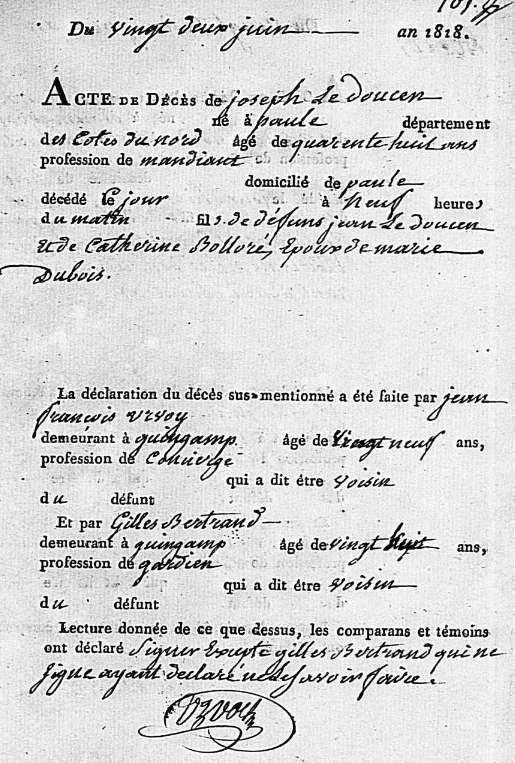 Du Vingt deux juin an 1818.
ACTE DE DÉCÈS de joseph Le doucen
né à paule département
des Cotes du nord âgé de quarente huit ans
profession de mandiant
domicilié de paule
décédé le jour à neuf heures
du matin fils de défuns jean Le doucen
et de Catherine Bolloré, Epoux de marie
Dubois.
La déclaration du décès sus-mentionné a été faite par jean
françois urvoy
demeurant à guingamp âgé de vingt neuf ans,
profession de Concierge
qui a dit être voisin
du défunt
Et par Gilles Bertrand
demeurant à guingamp âgé de vingt huit ans,
profession de gardien
qui a dit être voisin
du défunt
Lecture donnée de ce que dessus, les comparans et témoins
ont déclaré signer Excepté gilles Bertrand qui ne
signe ayant declaré ne le savoir faire.
urvoy